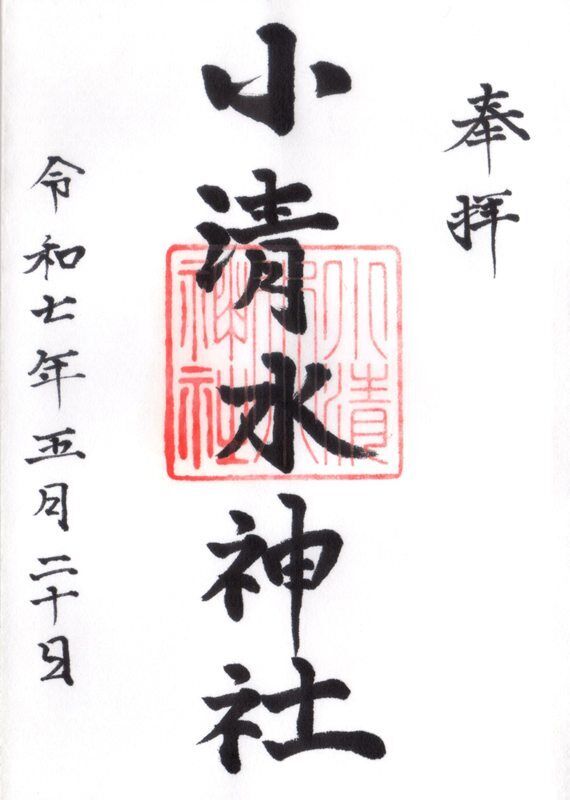 奉拝
小清水神社
小清水神社
令和七年五月二十日